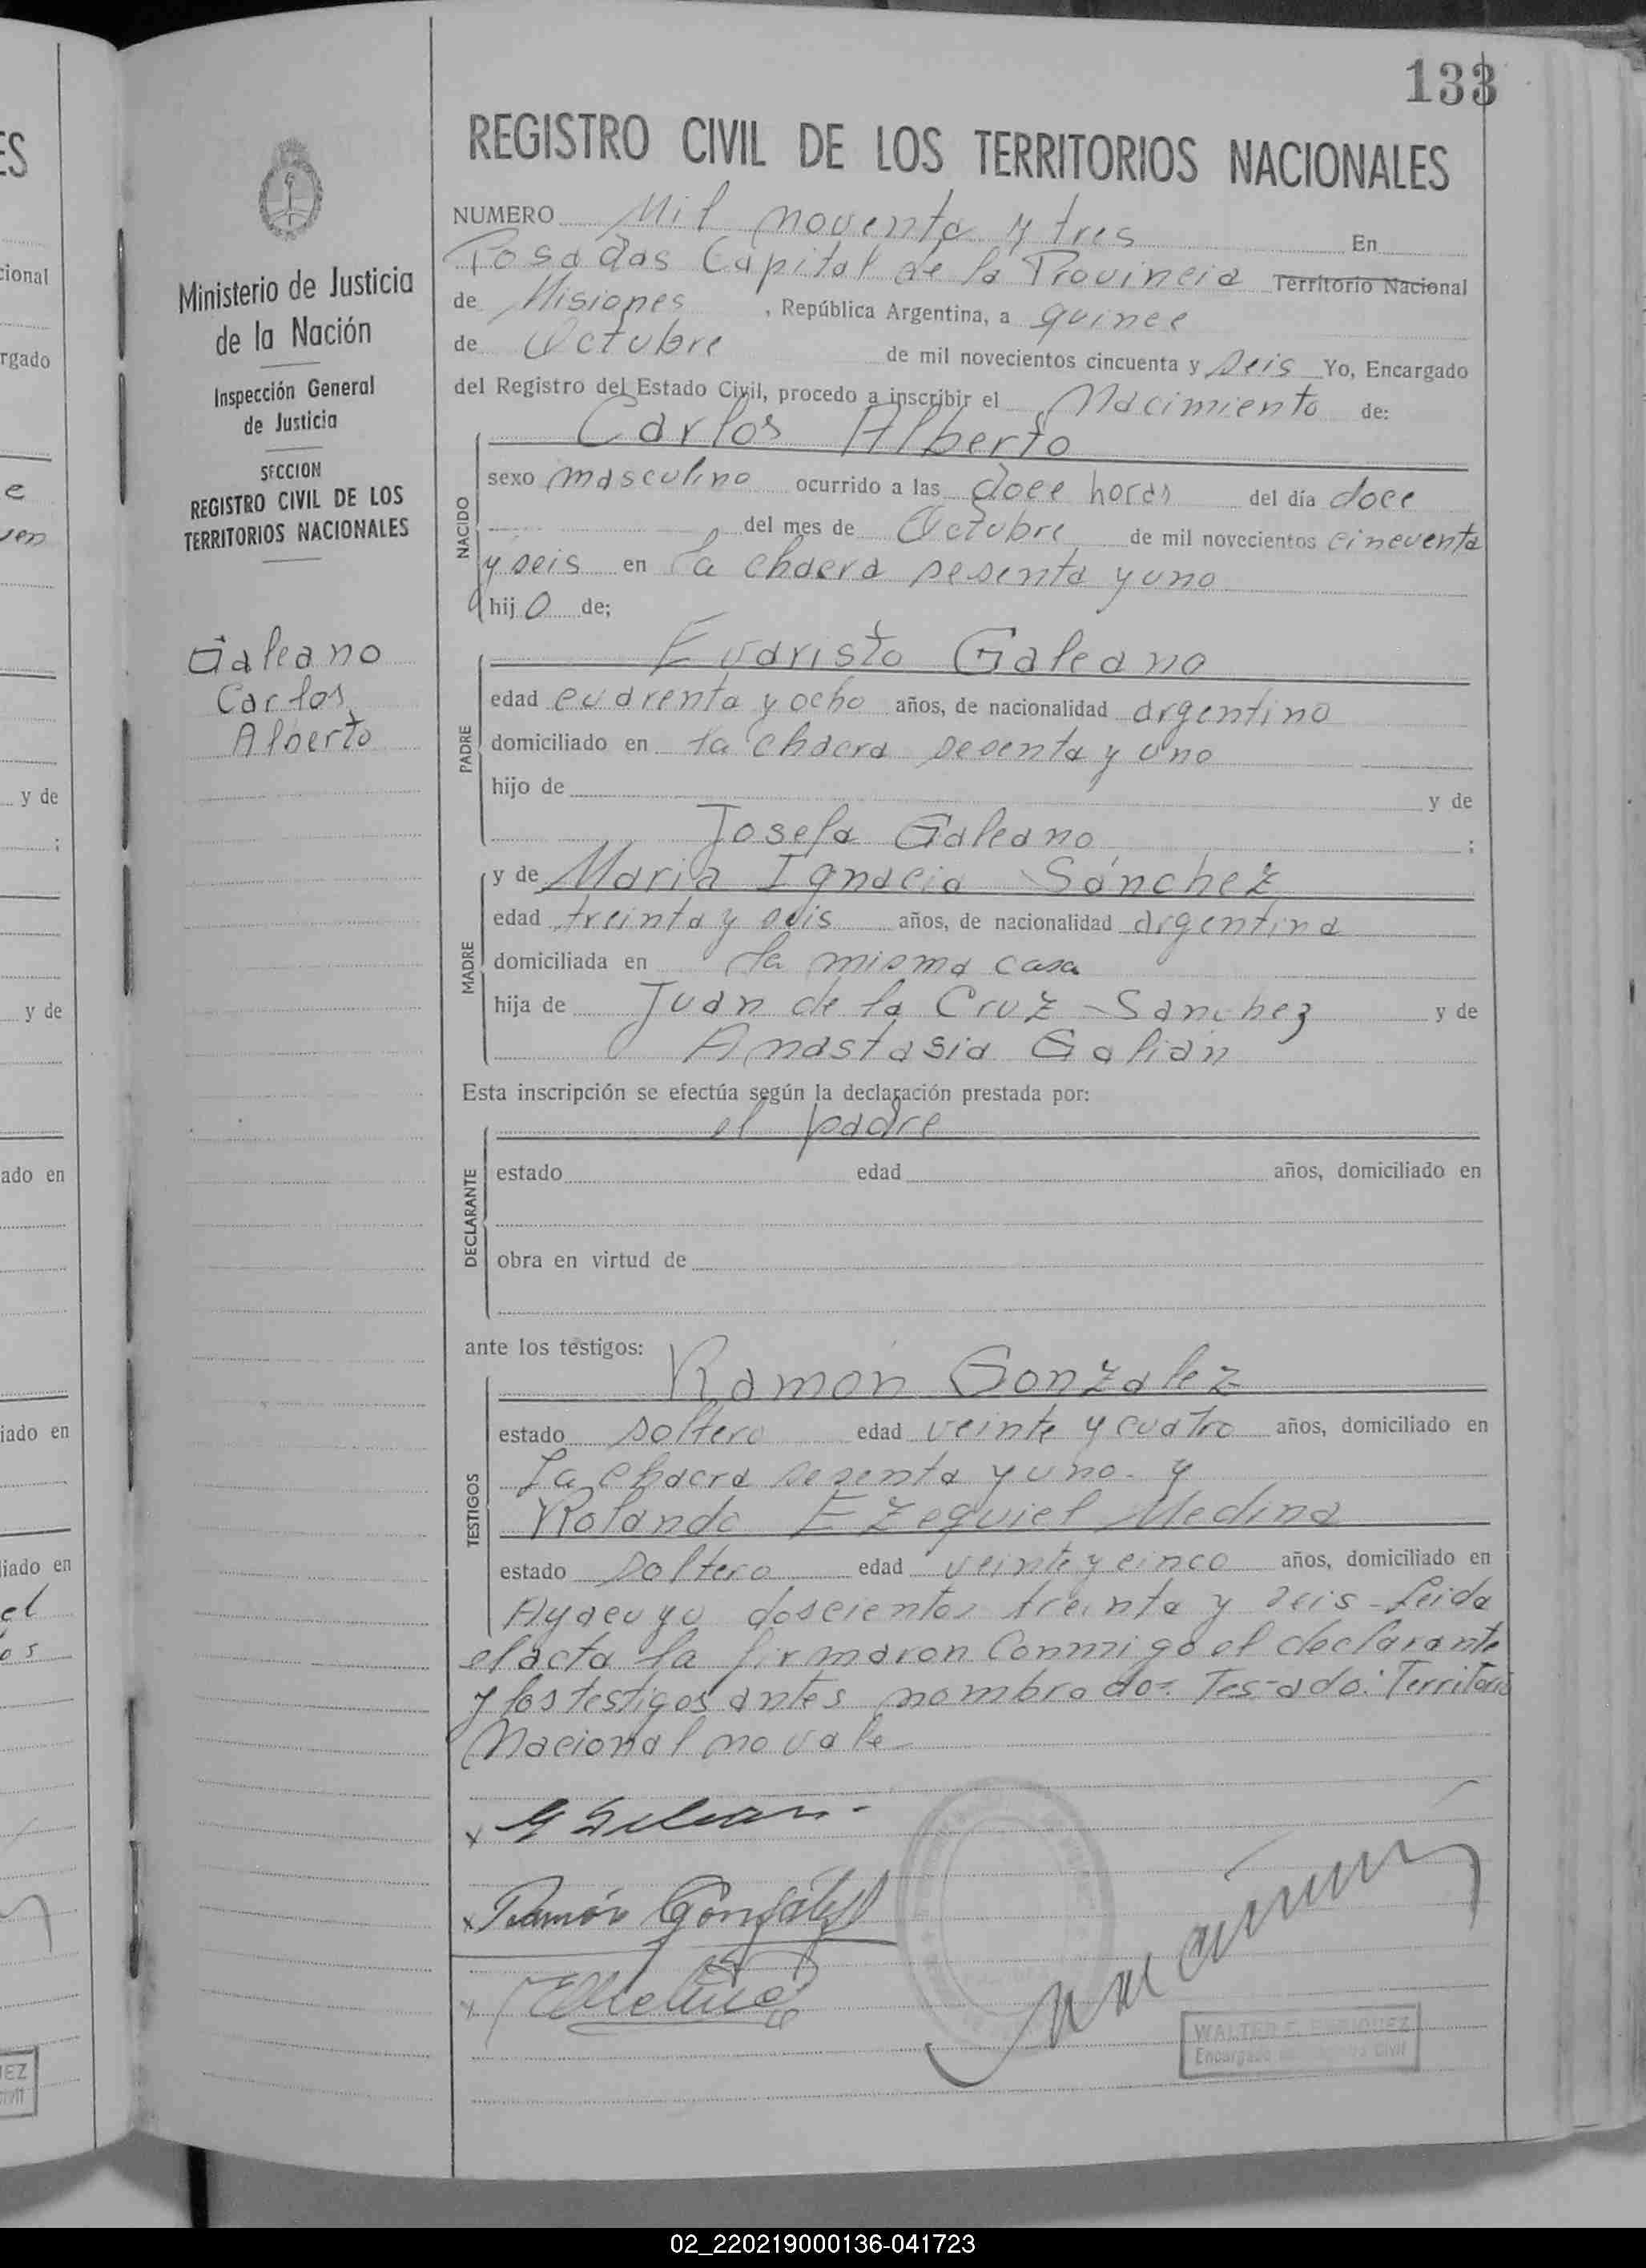 133
REGISTRO CIVIL DE LOS TERRITORIOS NACIONALES
Ministerio de Justicia
de la Nación
Inspección General
de Justicia
SECCION
REGISTRO CIVIL DE LOS
TERRITORIOS NACIONALES
Galeano
Carlos
Alberto
NUMERO Mil noventa y tres En
Posadas Capital de la Provincia Territorio Nacional
de Misiones , República Argentina, a quince
de Octubre de mil novecientos cincuenta y seis Yo, Encargado
del Registro del Estado Civil, procedo a inscribir el Nacimiento de:
NACIDO
Carlos Alberto
sexo masculino ocurrido a las doce horas del día doce
del mes de Octubre de mil novecientos cincuenta
y seis en la chacra sesenta y uno
hijo de;
PADRE
Evaristo Galeano
edad cuarenta y ocho años, de nacionalidad argentino
domiciliado en la chacra sesenta y uno
hijo de y de
Josefa Galeano ;
MADRE
y de Maria Ignacia Sánchez
edad treinta y seis años, de nacionalidad argentina
domiciliada en la misma casa
hija de Juan de la Cruz Sanchez y de
Anastasia Galian
Esta inscripción se efectúa según la declaración prestada por:
DECLARANTE
el padre
estado edad años, domiciliado en
obra en virtud de
ante los testigos:
TESTIGOS
Ramón Gonzalez
estado soltero edad veinte y cuatro años, domiciliado en
La chacra sesenta y uno - y
Rolando Ezequiel Medina
estado soltero edad veinte y cinco años, domiciliado en
Ayacuyo doscientos treinta y seis - Leida
el acta la firmaron conmigo el declarante
y los testigos antes nombrados. Testado: Territorio
Nacional no vale
Ramón González
WALTER E. ENRIQUEZ
Encargado del Registro Civil
02_220219000136-041723